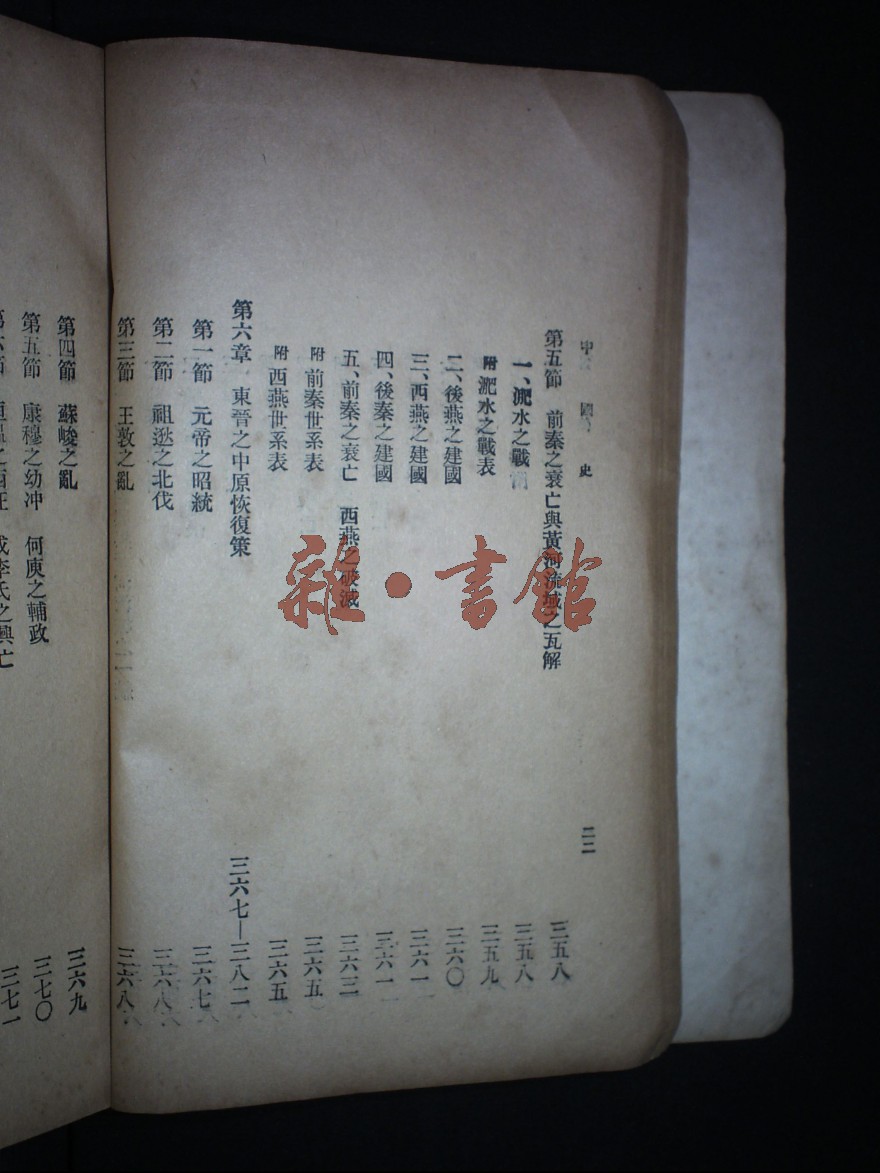 中國史
二二
第五節 前秦之衰亡與黃河流域之瓦解 三五八
一、淝水之戰 三五八
附 淝水之戰表 三五九
二、後燕之建國 三六〇
三、西燕之建國 三六一
四、後秦之建國 三六一
五、前秦之衰亡 西燕之破滅 三六三
附 前秦世系表 三六五
附 西燕世系表 三六五
第六章 東晉之中原恢復策 三六七—三八二
第一節 元帝之昭統 三六七
第二節 祖逖之北伐 三六八
第三節 王敦之亂 三六八
第四節 蘇峻之亂 三六九
第五節 康穆之幼冲 何庾之輔政 三七〇
李氏之興亡 三七一
雜·書館